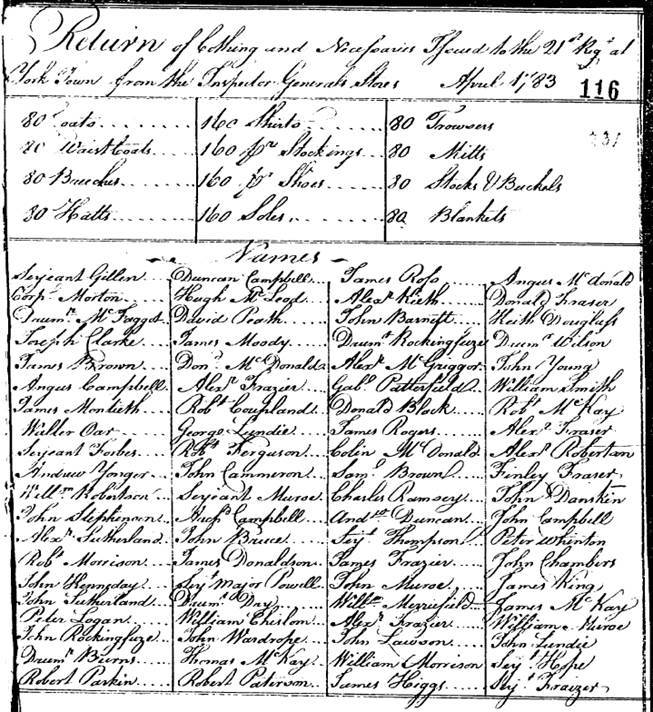 Return of Clothing and Necessaries Issued to the 21st Regt at
York Town from the Inspector Generals Stores April 1783
116
80 Coats 160 Shirts 80 Trowsers
80 WaistCoats 160 pr Stockings 80 Mitts
80 Breeches 160 pr Shoes 80 Stocks & Buckels
80 Hatts 160 Soles 80 Blankets
Names
Serjeant Gillen Duncan Campbell James Ross Angus McDonald
Corpl Morton Hugh McLeod Alexr Keith Donald Fraser
Drumr McFaggot David Peath John Barnett Keith Douglass
Joseph Clarke James Moody Drumr Rockingfuze Drumr Wilson
James Brown Dond McDonald Alexr McGriggor John Young
Angus Campbell Alexr Frazier Gabl Patterfield William Smith
James Montieth Robt Coupland Donald Black Robt McKay
Walter Oar George Lyndie James Rogers Alexr Fraser
Serjeant Forbes Robt Ferguson Colin McDonald Alexr Robertson
Andrew Yonger John Cammeron Saml Brown Finley Fraser
Willm Robertson Serjeant Muroe Charles Ramsey John Danskin
John Stephenson Archd Campbell Andrw Duncan John Campbell
Alexr Sutherland John Bruce Serjt Thompson Peter Whinton
Robt Morrison James Donaldson James Frazier John Chambers
John Kenneday Serjt Major Powell John Muroe James King
John Sutherland Drumr Day Willm Merriefield James McKay
Peter Logan William Chislom Alexr Frazier William Muroe
John Rockingfuze John Wardrope John Lawson John Lundie
Drumr Burns Thomas McKay William Morrison Serjt Hope
Robert Parkin Robert Paterson James Higgs Serjt Fraizer